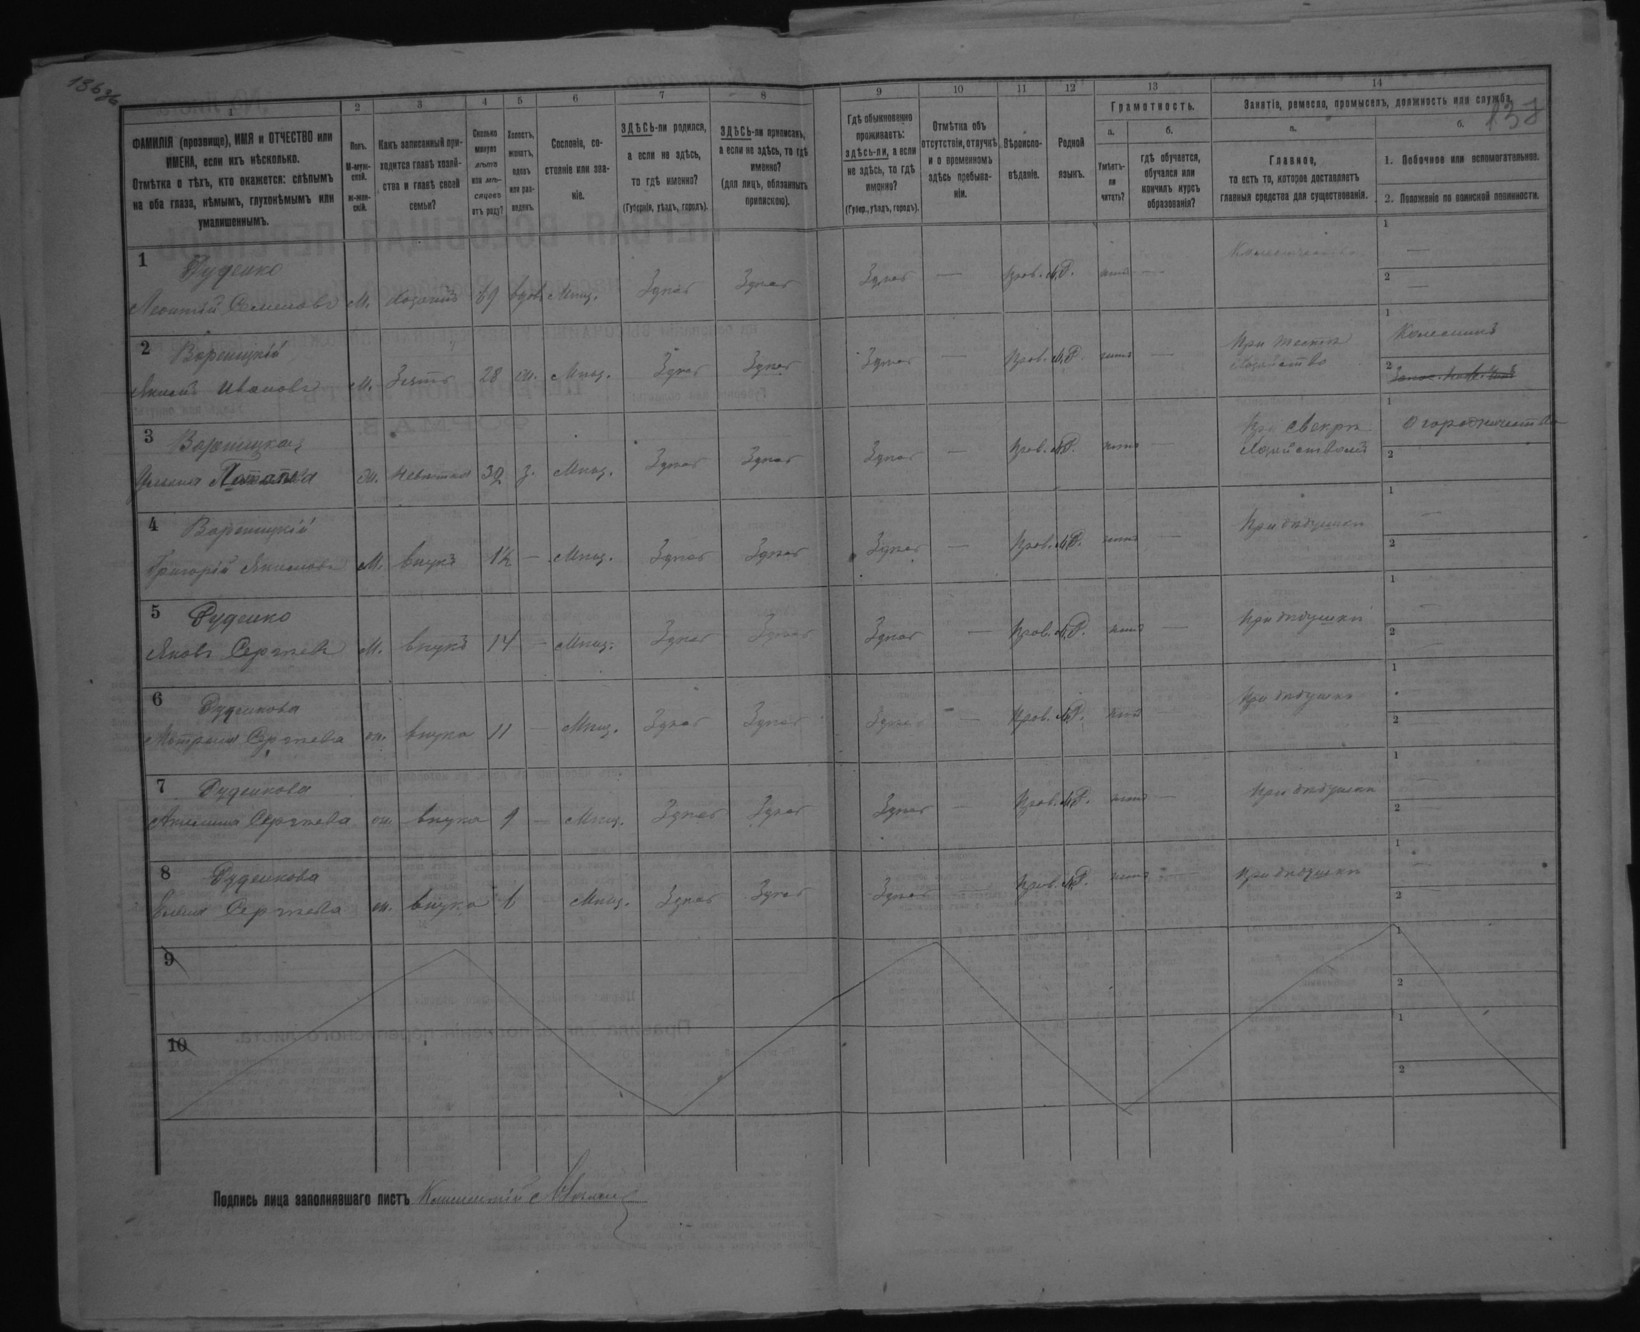 136 об
137
1 2 3 4 5 6 7 8 9 10 11 12 13 14
ФАМИЛІЯ (прозвище), ИМЯ и ОТЧЕСТВО или ИМЕНА, если ихъ нѣсколько.
Отмѣтка о тѣхъ, кто окажется: слѣпымъ на оба глаза, нѣмымъ, глухонѣмымъ или умалишеннымъ.
Полъ. М-мужской. ж-женскій.
Какъ записанный приходится главѣ хозяйства и главѣ своей семьи?
Сколько минуло лѣтъ или мѣсяцевъ отъ роду?
Холостъ, женатъ, вдовъ или разведенъ.
Сословіе, состояніе или званіе.
ЗДѢСЬ-ли родился, а если не здѣсь, то гдѣ именно?
(Губернія, уѣздъ, городъ).
ЗДѢСЬ-ли приписанъ, а если не здѣсь, то гдѣ именно?
(для лицъ, обязанныхъ припискою).
Гдѣ обыкновенно проживаетъ: здѣсь-ли, а если не здѣсь, то гдѣ именно?
(Губер., уѣздъ, городъ).
Отмѣтка объ отсутствіи, отлучкѣ и о временномъ здѣсь пребываніи.
Вѣроисповѣданіе.
Родной языкъ.
Грамотность.
а.
Умѣетъ-ли читать?
б.
гдѣ обучается, обучался или кончилъ курсъ образованія?
Занятіе, ремесло, промыселъ, должность или служба.
а.
Главное,
то есть то, которое доставляетъ главныя средства для существованія.
б.
1. Побочное или вспомогательное.
2. Положеніе по воинской повинности.
1 Дуденко
Леонтій Семеновъ м. хозяинъ 69 вдов. Мѣщ. Здѣсь Здѣсь Здѣсь — Прав. М.Р. нѣтъ — 1 — 2 —
2 Вороницкій
Акимъ Ивановъ м. Зять 28 ж. Мѣщ. Здѣсь Здѣсь Здѣсь — Прав. М.Р. нѣтъ — При тестѣ
хозяйство 1 2
3 Вороницкая
Потапова ж. невѣстка 32 з. Мѣщ. Здѣсь Здѣсь Здѣсь — Прав. М.Р. нѣтъ — При свекрѣ
1 Огородничество 2
4 Вороницкій
Григорій Акимовъ м. внукъ 12 — Мѣщ. Здѣсь Здѣсь Здѣсь — Прав. М.Р. нѣтъ — При дѣдушкѣ 1 — 2
5 Дуденко
Яковъ Сергѣевъ м. внукъ 14 — Мѣщ. Здѣсь Здѣсь Здѣсь — Прав. М.Р. нѣтъ — При дѣдушкѣ 1 — 2
6 Дуденкова
Мотрона Сергѣева ж. внука 11 — Мѣщ. Здѣсь Здѣсь Здѣсь — Прав. М.Р. нѣтъ — При дѣдушкѣ 1 2
7 Дуденкова
Акилина Сергѣева ж. внука 9 — Мѣщ. Здѣсь Здѣсь Здѣсь — Прав. М.Р. нѣтъ — При дѣдушкѣ 1 — 2
8 Дуденкова
Сергѣева ж. внука 6 — Мѣщ. Здѣсь Здѣсь Здѣсь — Прав. М.Р. нѣтъ — При дѣдушкѣ 1 — 2
9 1 2
10 1 2
Подпись лица заполнявшаго листъ